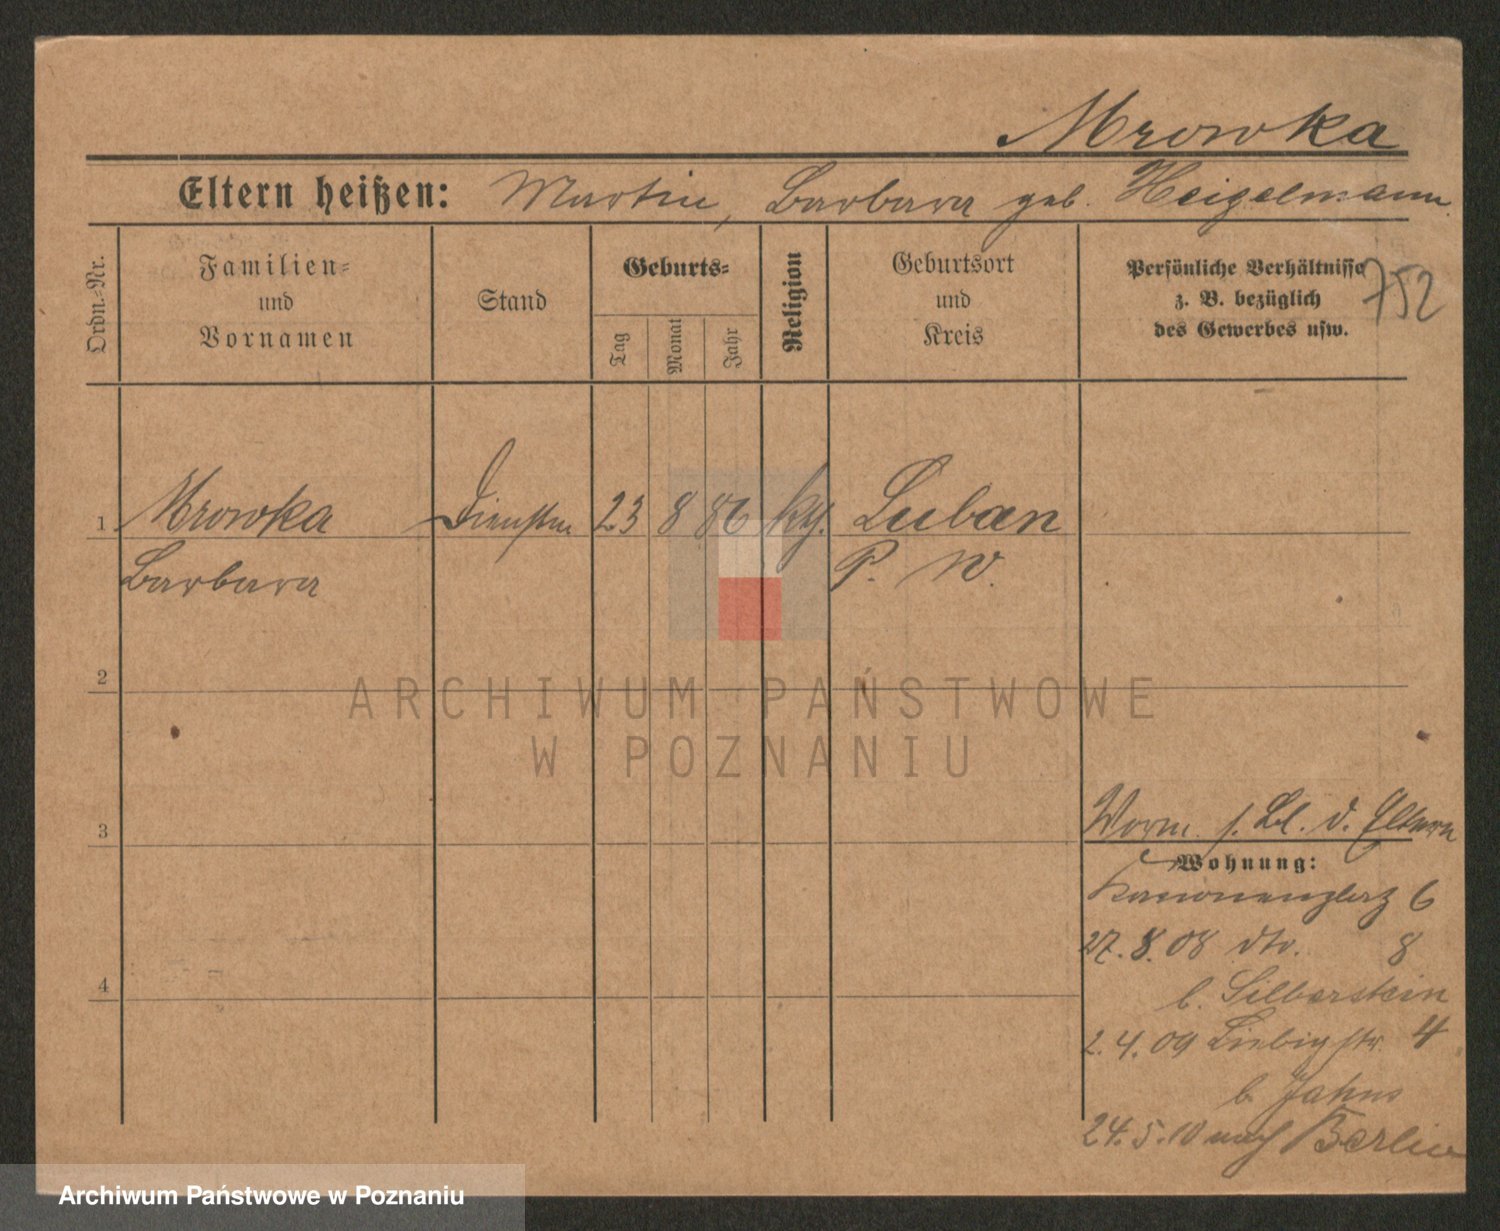 Mrowka
Eltern heißen: Martin, Barbara geb. Heigelmann
Ordn.-Nr.
Familien-
und
Vornamen
Stand
Geburts-
Tag
Monat
Jahr
Religion
Geburtsort
und
Kreis
Persönliche Verhältnisse
z. B. bezüglich
des Gewerbes usw.
752
1 Mrowka Dienstm 23 8 86 kth. Luban
Barbara P. W.
2
ARCHIWUM PAŃSTWOWE
W POZNANIU
3
Vorm. s. Bl. d. Eltern
Wohnung:
Kanonenplatz 6
27.8.08 dto. 8
b. Silberstein
4
2.4.09 Liebigstr. 4
b. Jahns
24.5.10 nach Berlin
Archiwum Państwowe w Poznaniu